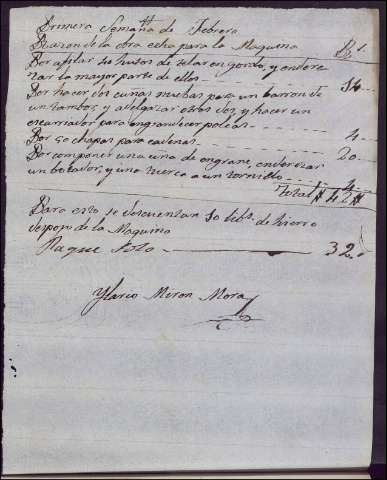 Primera Semana de Febrero
Razon de la obra echa para la Maquina Rs.
Por afilar 50 husos de telar en gordo, y endere
zar la mayor parte de ellos 14
Por hacer dos cuñas nuebas para un barron de
un tambor, y adelgazar otras dos, y hacer un
escariador para engrandecer poleas 4
Por 50 chapas para cadenas 20
Por componer una uña de engrane, enderezar
un bolador, y una tuerca a un tornillo 4
Total # 42 #
Para esto se descuentan 50 libs. de hierro
despojo de la Maquina
Pague solo 32
Ylario Miron Mora